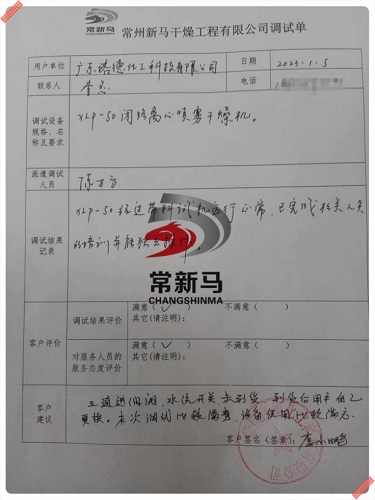 常新马
常州新马干燥工程有限公司调试单
用户单位 广东塔德化工科技有限公司 日期 2023.1.5
联系人 李总 电话
调试设备规格、名称及要求 XLP-50闭路离心喷雾干燥机。
派遣调试人员 陈万方
调试结果记录 XLP-50经过带料试机运行正常,已完成相关人员
的培训并能独立操作。
常新马
CHANGSHINMA
客户评价 调试结果评价 满意(√) 不满意( )
其它(请注明):
对服务人员的服务态度评价 满意(√) 不满意( )
其它(请注明):
客户建议 水位开关未到货,到货后用户自己
更换。本次调试比较满意,设备使用比较满意。
客户签名(签章):李小鹏